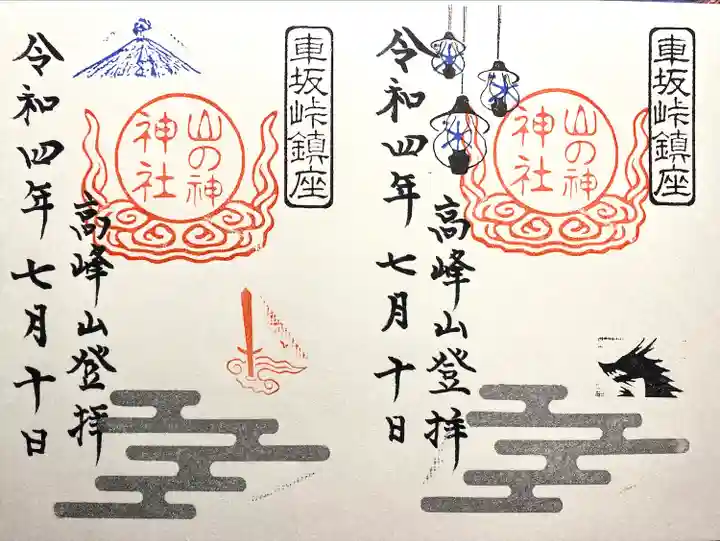 車坂峠鎮座
山の神
神社
高峰山登拝
令和四年七月十日
車坂峠鎮座
山の神
神社
高峰山登拝
令和四年七月十日